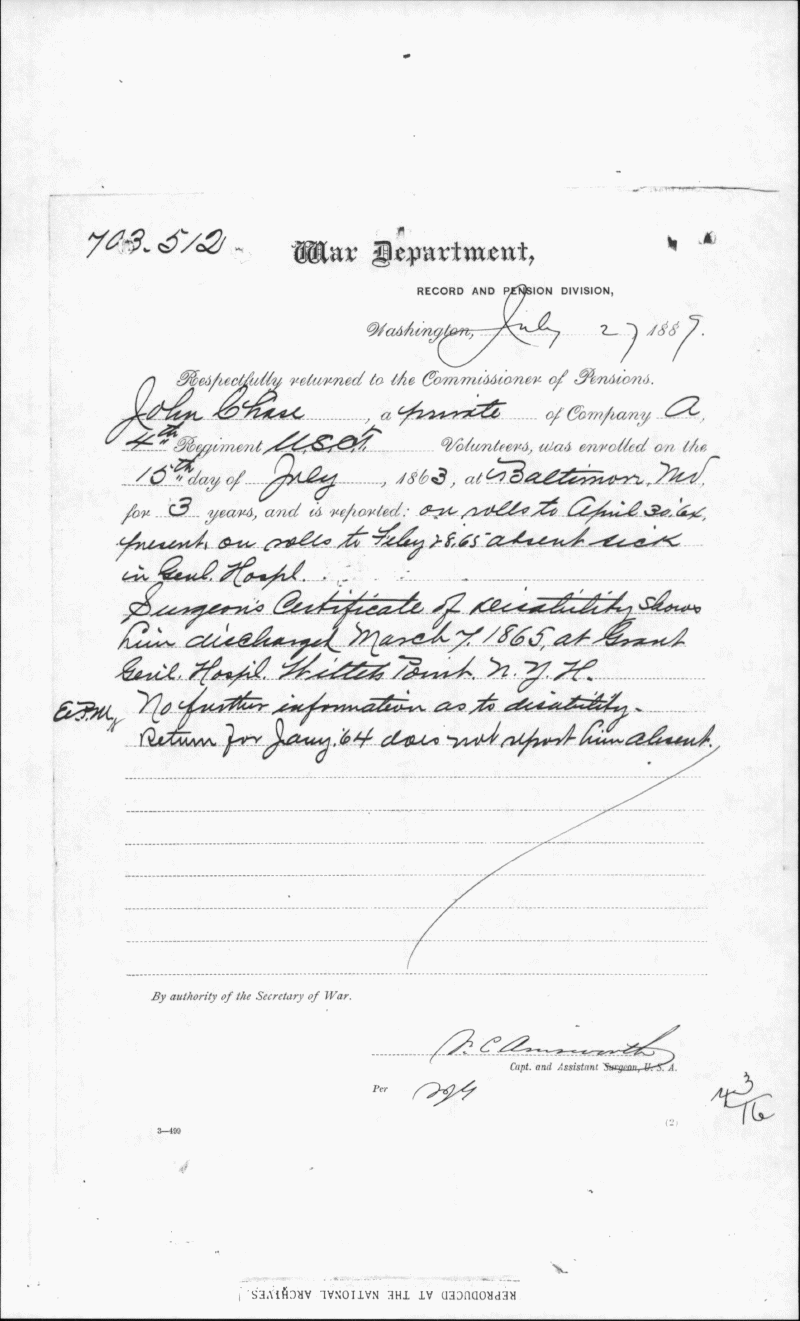 703.512
War Department,
RECORD AND PENSION DIVISION,
Washington, July 27, 1889.
Respectfully returned to the Commissioner of Pensions.
John Chase, a private of Company A,
4th Regiment U.S.C.T. Volunteers, was enrolled on the
15th day of July, 1863, at Baltimore, Md,
for 3 years, and is reported: on rolls to April 30 '64,
present, on rolls to Feby 28, 65 absent sick
in Genl. Hospl.
Surgeon's Certificate of Disability shows
him discharged March 7, 1865, at Grant
Genl. Hospl. Willets Point. N. Y. H.
No further information as to disability.
Return for Jany. '64 does not report him absent.
By authority of the Secretary of War.
F. C. Ainsworth
Capt. and Assistant Surgeon, U. S. A.
Per
3—490
(2)
REPRODUCED AT THE NATIONAL ARCHIVES